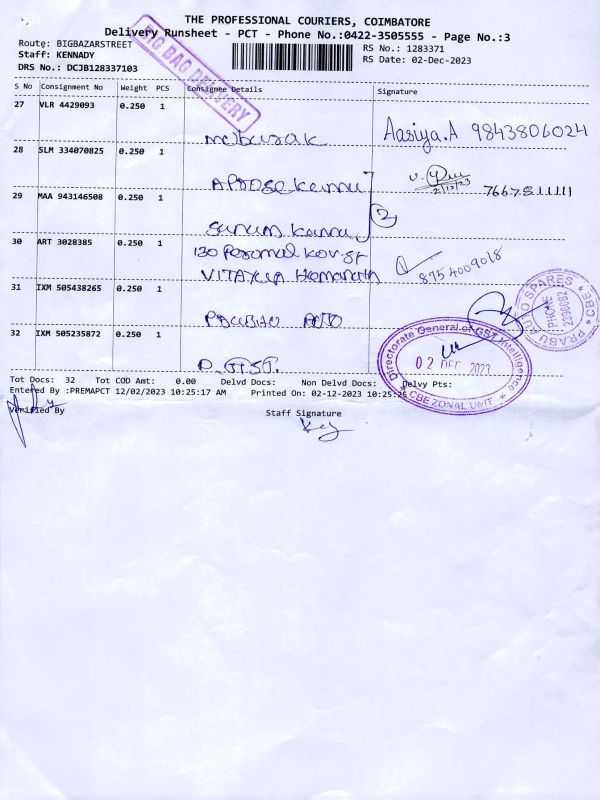 THE PROFESSIONAL COURIERS, COIMBATORE
Delivery Runsheet - PCT - Phone No.:0422-3505555 - Page No.:3
Route: BIGBAZARSTREET
Staff: KENNADY
DRS No.: DCJB128337103
RS No.: 1283371
RS Date: 02-Dec-2023
BIG BAG DELIVERY
S No Consignment No Weight PCS Consignee Details Signature
27 VLR 4429093 0.250 1
mobarak Aasiya.A 9843806024
28 SLM 334070825 0.250 1
2/12/23 7667811111
29 MAA 943146508 0.250 1
2
30 ART 3028385 0.250 1
130 Peromal Kov.St
8754009018
31 IXM 505438265 0.250 1
AUTO SPARES
PHONE
2390282
PRABU
CBE
32 IXM 505235872 0.250 1
Directorate General of GST Intelligence
02 DEC 2023
CBE ZONAL UNIT
Tot Docs: 32 Tot COD Amt: 0.00 Delvd Docs: Non Delvd Docs: Delvy Pts:
Entered By :PREMAPCT 12/02/2023 10:25:17 AM Printed On: 02-12-2023 10:25:26
Verified By Staff Signature